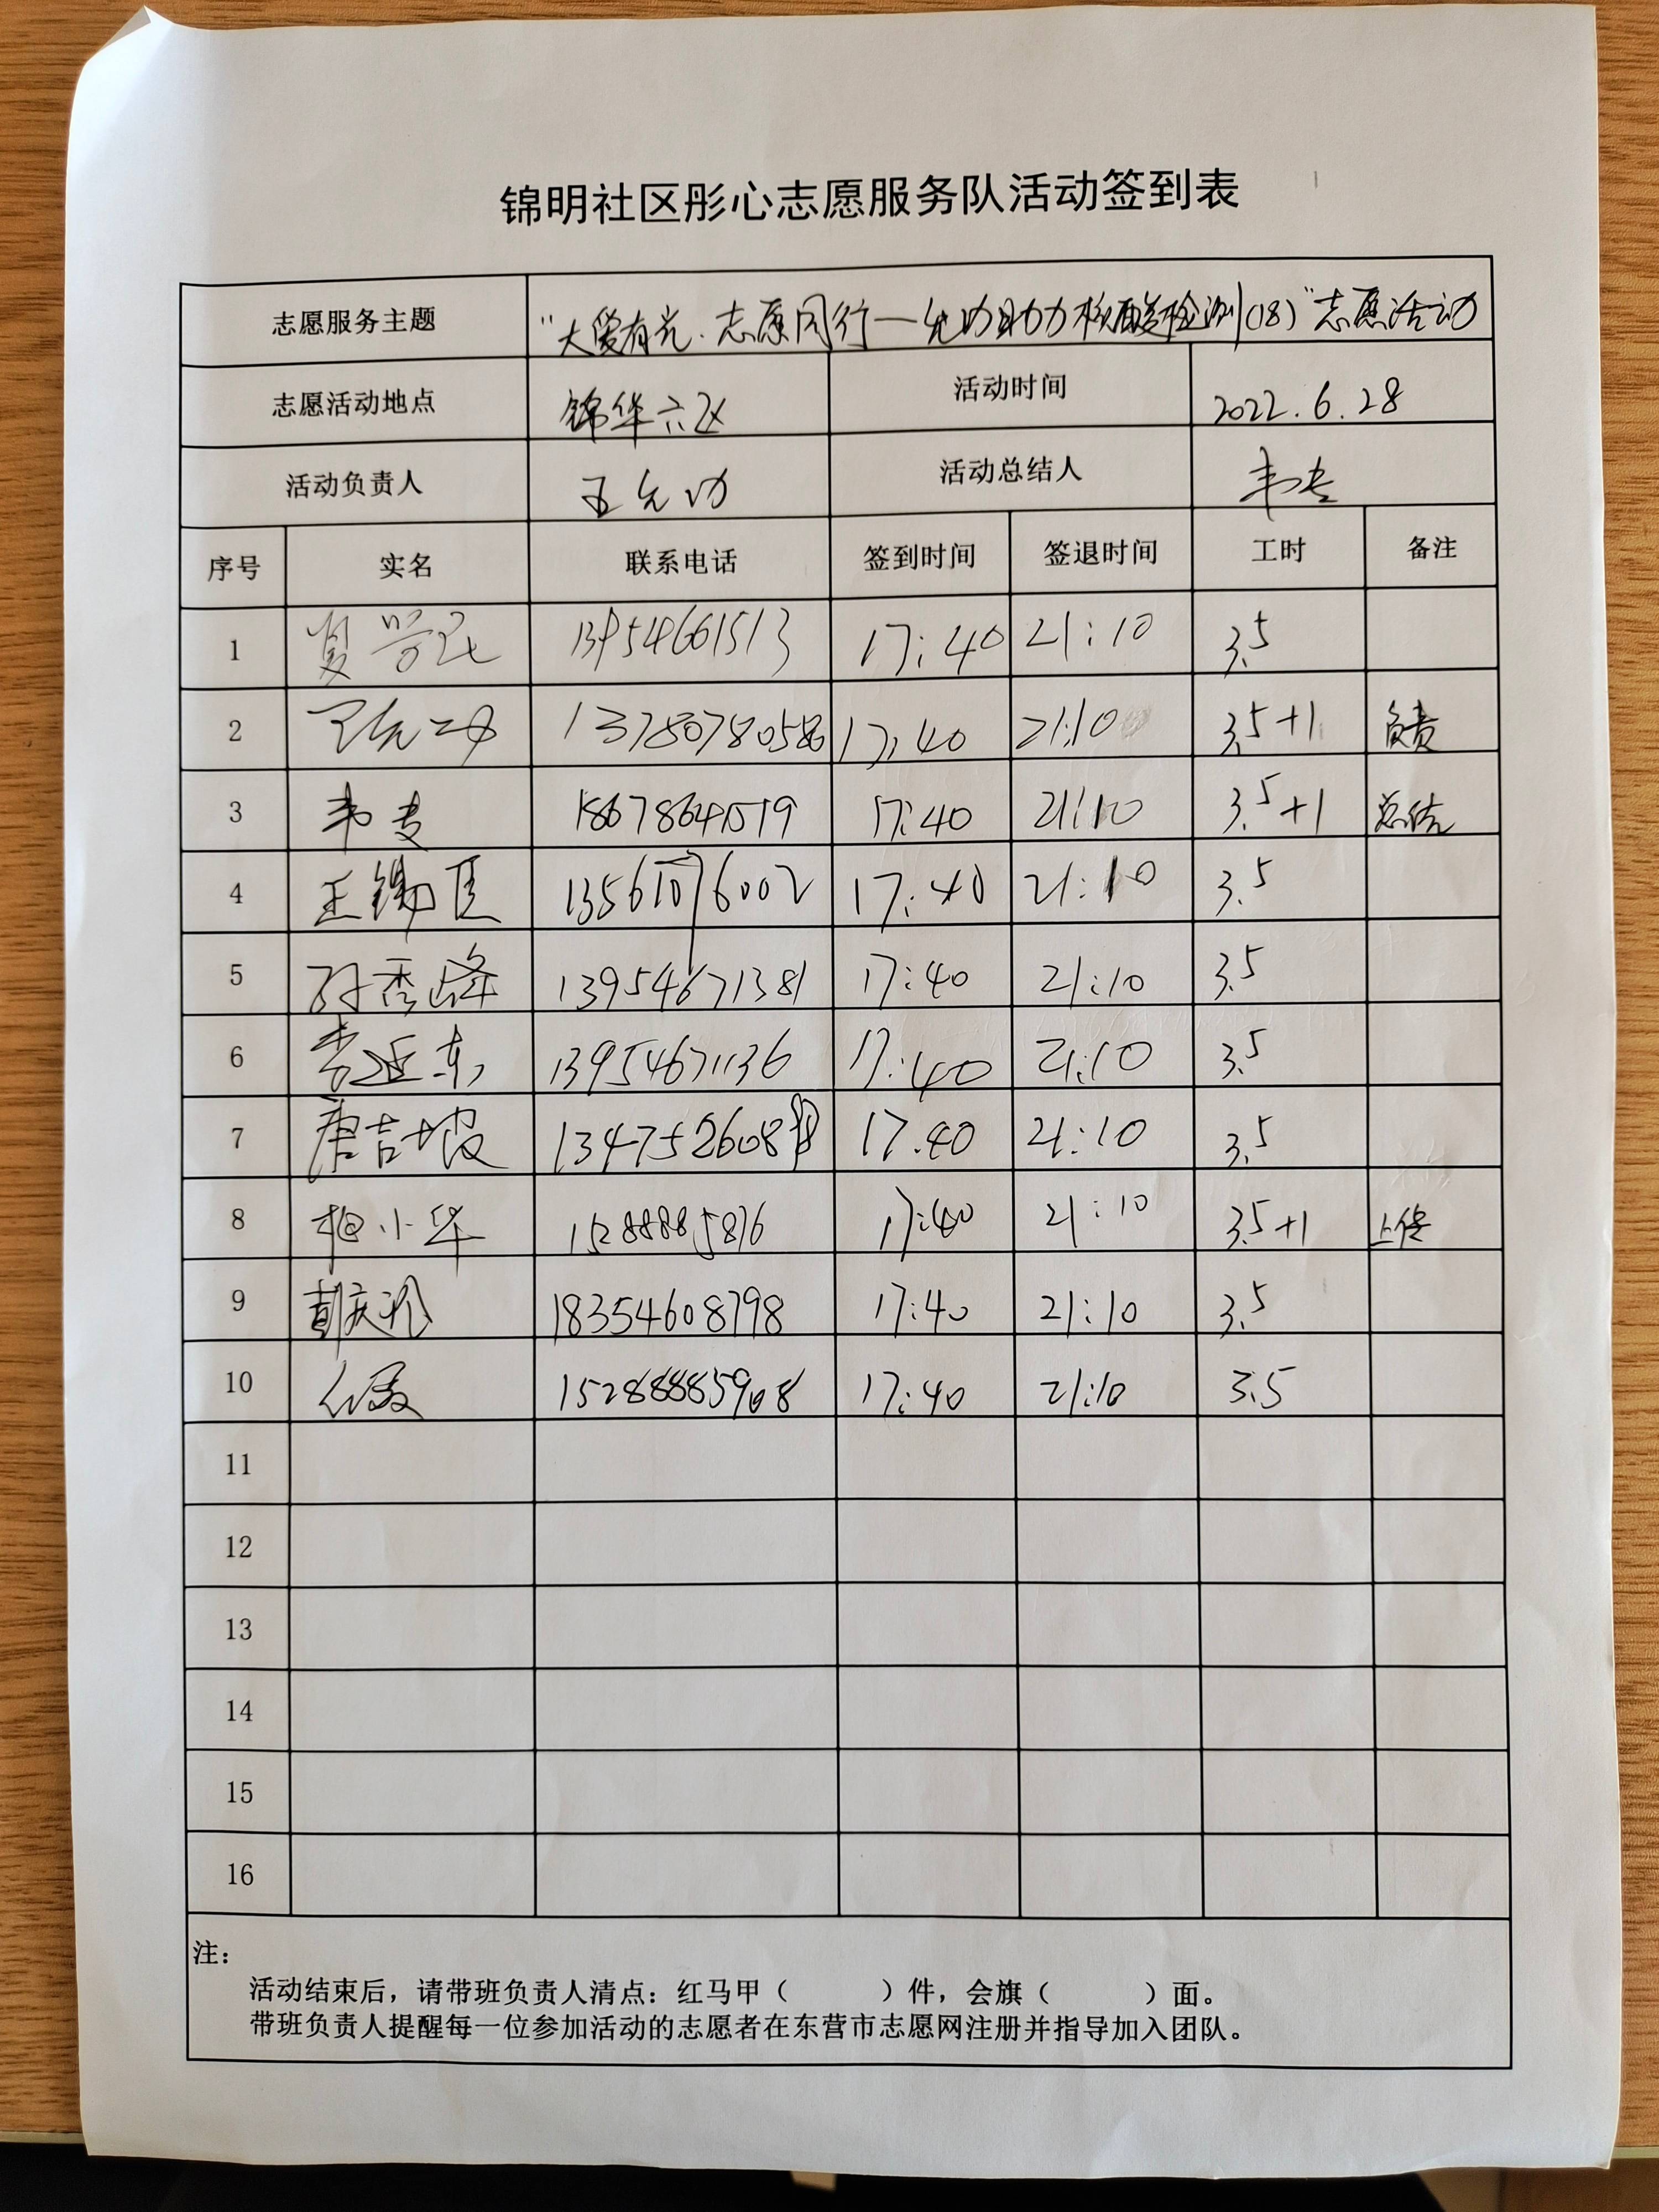 锦明社区彤心志愿服务队活动签到表
志愿服务主题 "大爱有光·志愿同行—允功助力核酸检测(18)"志愿活动
志愿活动地点 锦华六区 活动时间 2022.6.28
活动负责人 王允功 活动总结人 韦专
序号 实名 联系电话 签到时间 签退时间 工时 备注
1 13954661513 17:40 21:10 3.5
2 王允功 13780780586 17:40 21:10 3.5+1 负责
3 韦专 18678641519 17:40 21:10 3.5+1 总结
4 王锡臣 13561076002 17:40 21:10 3.5
5 孙秀峰 13954671381 17:40 21:10 3.5
6 李延东 13954671136 17:40 21:10 3.5
7 唐吉坡 17.40 21:10 3.5
8 小华 15288885876 17:40 21:10 3.5+1 上传
9 18354608798 17:40 21:10 3.5
10 15288885908 17:40 21:10 3.5
11
12
13
14
15
16
注：
活动结束后，请带班负责人清点：红马甲（ ）件，会旗（ ）面。
带班负责人提醒每一位参加活动的志愿者在东营市志愿网注册并指导加入团队。